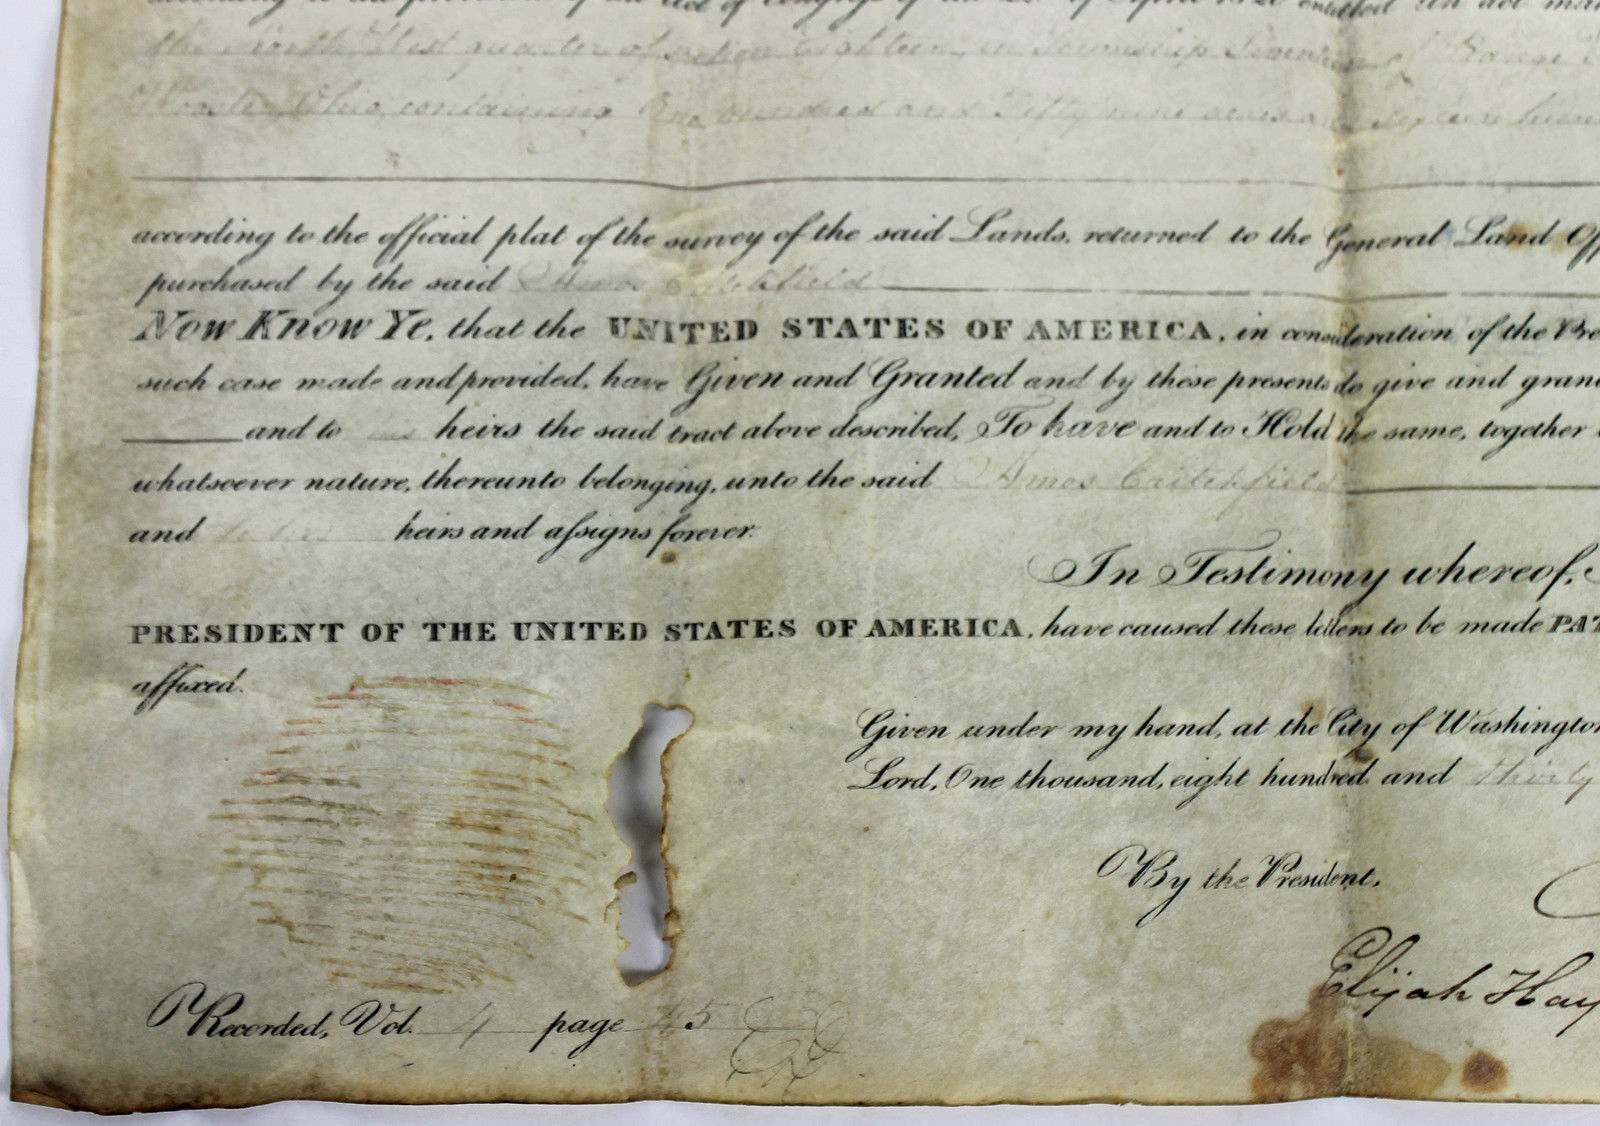 according to the provisions of the act of Congress of the of April 1820 entitled An act
the North West quarter of section Eighteen, in Township Seventeen of Range
Wooster, Ohio, containing One hundred and Fifty nine acres and
according to the official plat of the survey of the said Lands, returned to the General Land Off
purchased by the said Amos Critchfield
Now Know Ye, that the UNITED STATES OF AMERICA, in consideration of the Pre
such case made and provided, have Given and Granted and by these presents do give and gran
and to his heirs the said tract above described, To have and to Hold the same, together
whatsoever nature, thereunto belonging, unto the said Amos Critchfield
and to his heirs and aſsigns forever.
In Testimony whereof,
PRESIDENT OF THE UNITED STATES OF AMERICA, have caused these letters to be made PAT
affixed.
Given under my hand, at the City of Washington
Lord, One thousand, eight hundred and thirty
By the President.
Elijah Hay
Recorded, Vol. 4 page 5